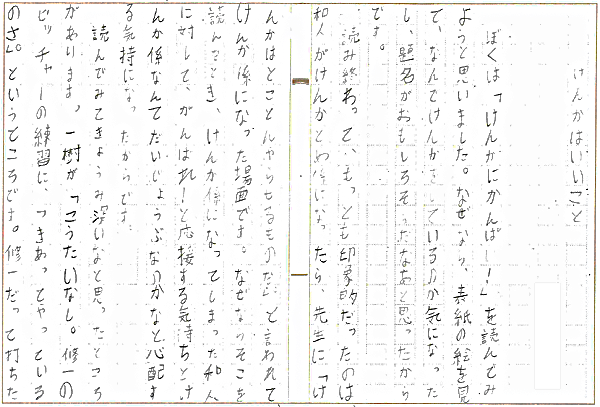 けんかはいいこと
ぼくは「けんかにかんぱーい!」を読んでみ
ようと思いました。なぜなら、表紙の絵を見
て、なんでけんかをしているのか気になった
し、題名がおもしろそうだなあと思ったから
です。
読み終わって、もっとも印象的だったのは
和人がけんかとめ係になったら、先生に「け
んかはとことんやらせるものだ」と言われて
けんか係になった場面です。なぜならそこを
読んだとき、けんか係になってしまった和人
に対して、がんばれーと応接する気持ちとけ
んか係なんてだいじょうぶなのかなと心配す
る気持になったからです
読んでみてきょうみ深いなと思ったところ
があります。一樹が「こうたいなし。修一の
ピッチャーの練習に、つきあってやっている
のさ。」というところです。修一だって打ちた